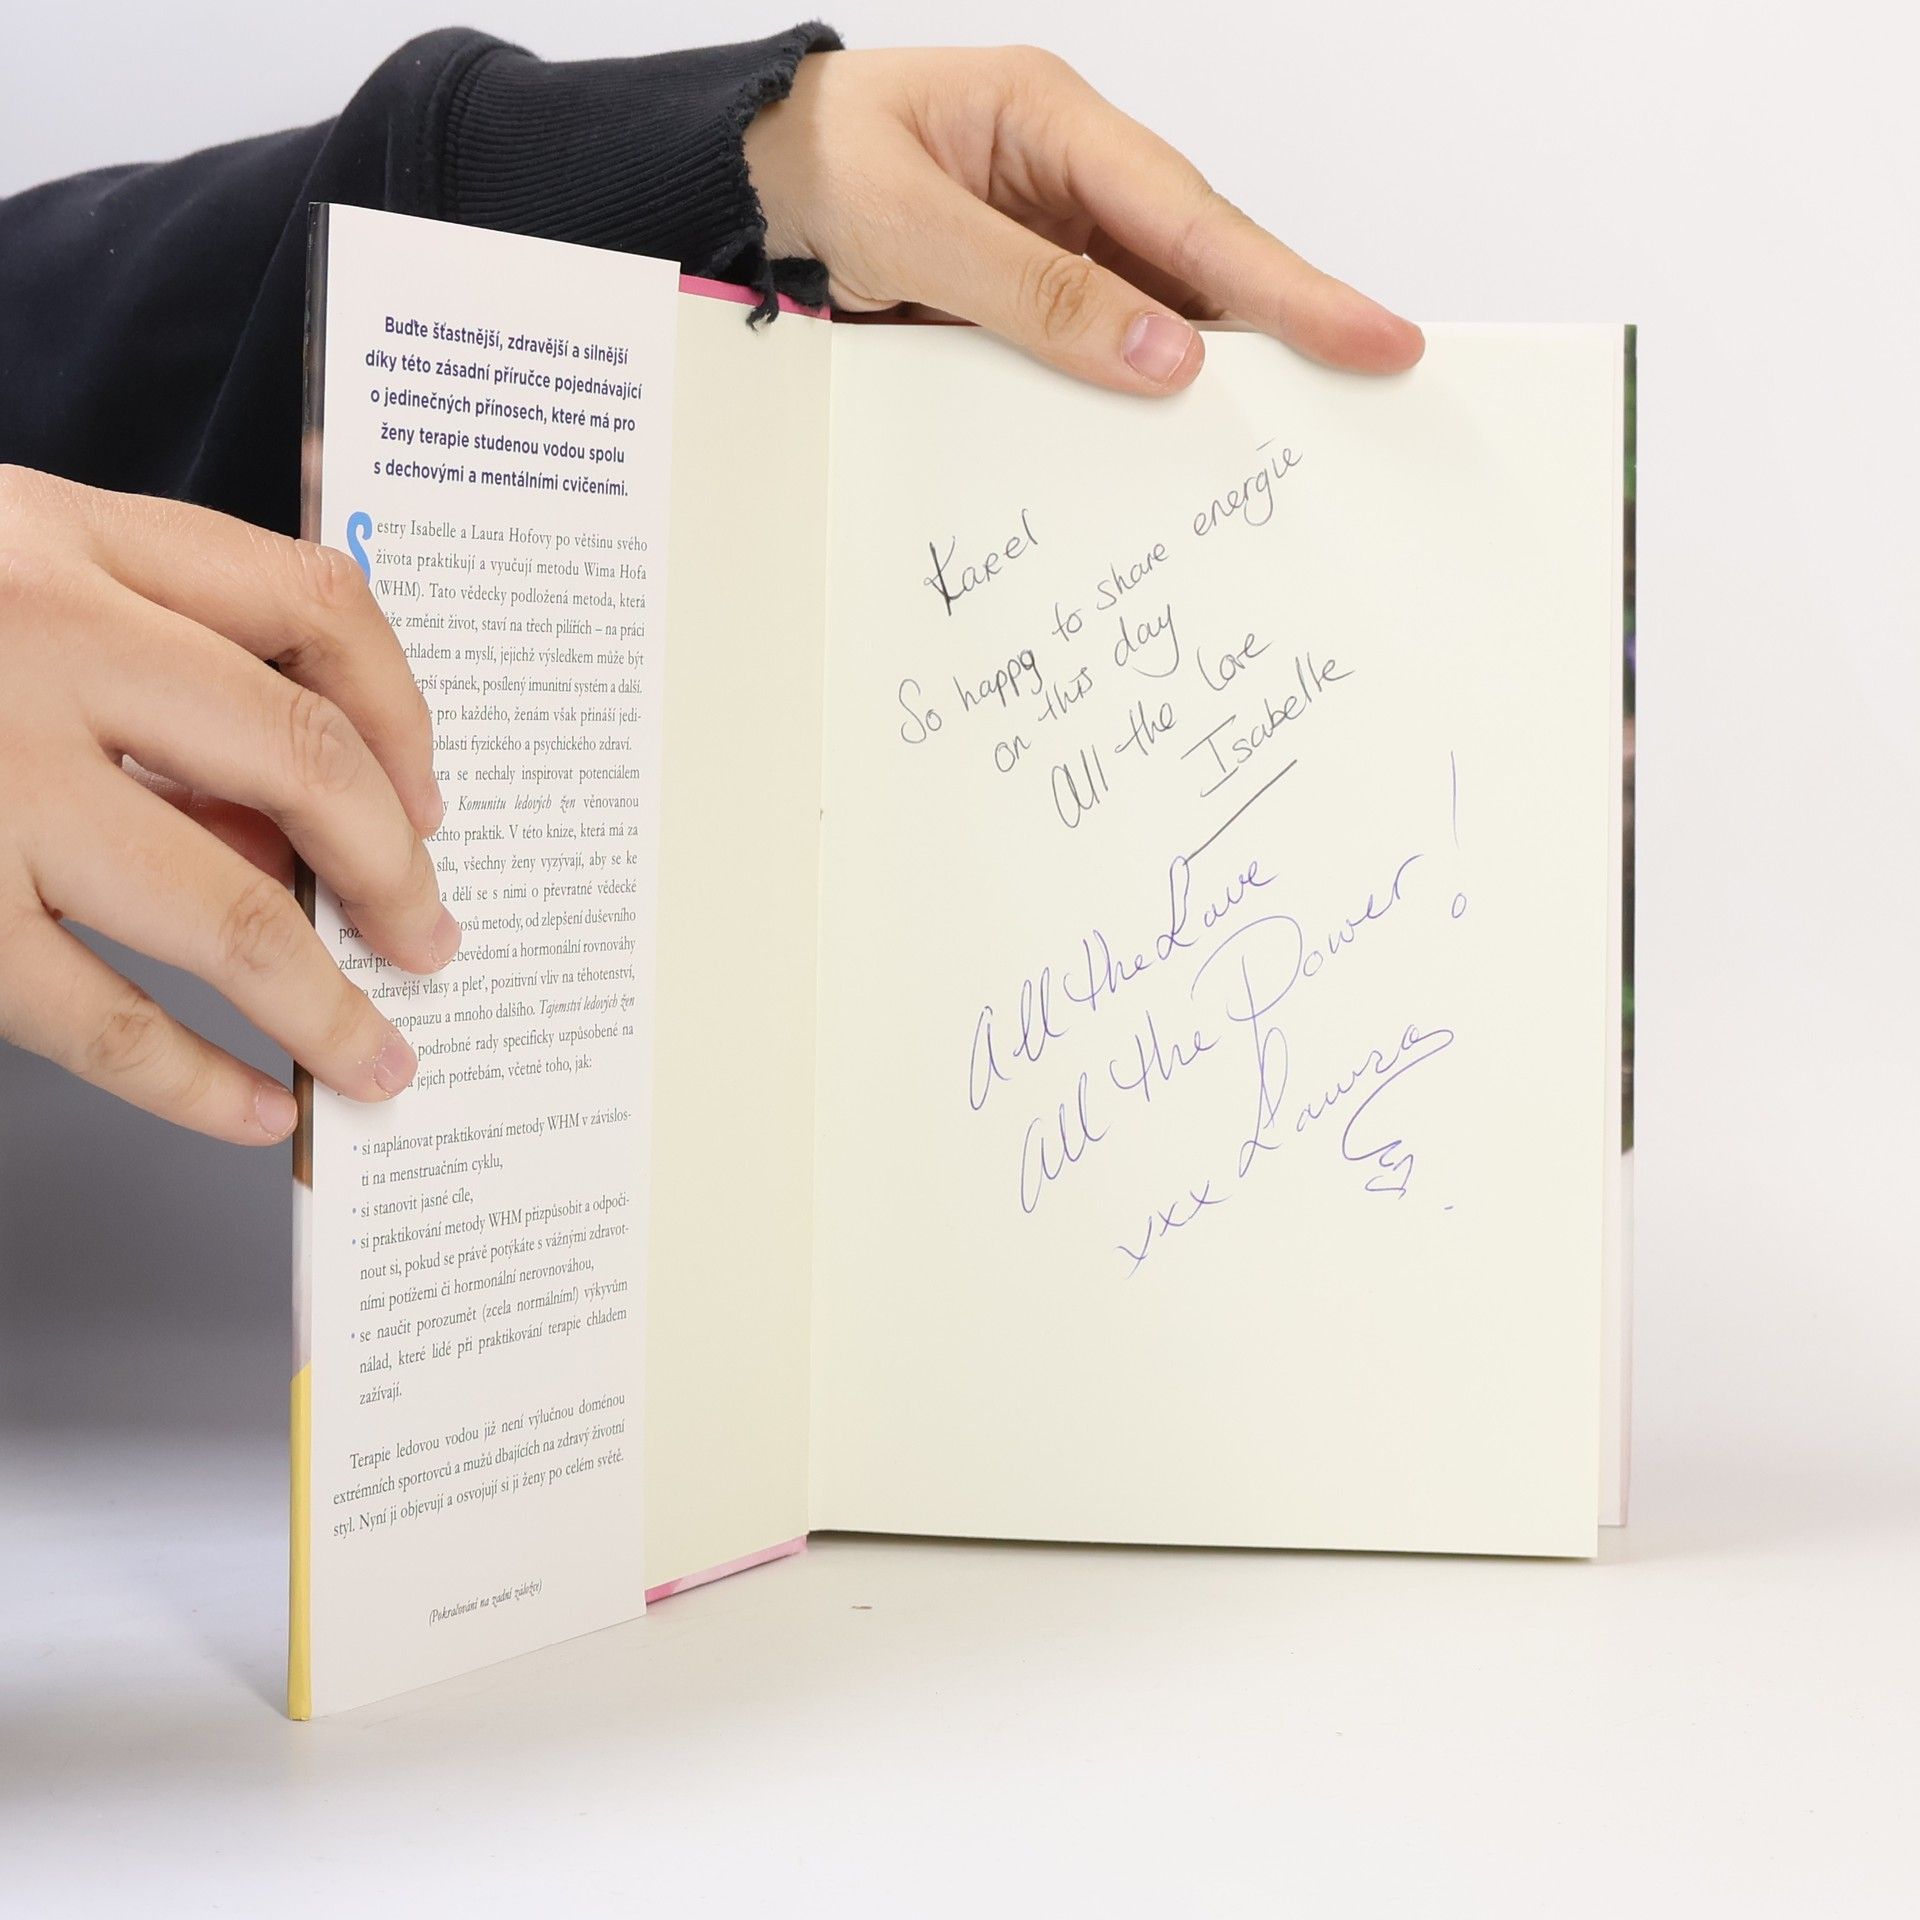 Buďte šťastnější, zdravější a silnější
díky této zásadní příručce pojednávající
o jedinečných přínosech, které má pro
ženy terapie studenou vodou spolu
s dechovými a mentálními cvičeními.
Sestry Isabelle a Laura Hofovy po většinu svého
života praktikují a vyučují metodu Wima Hofa
(WHM). Tato vědecky podložená metoda, která
změnit život, staví na třech pilířích – na práci
chladem a myslí, jejichž výsledkem může být
spánek, posílený imunitní systém a další.
pro každého, ženám však přináší jedi-
oblasti fyzického a psychického zdraví.
se nechaly inspirovat potenciálem
Komunitu ledových žen věnovanou
praktik. V této knize, která má za
sílu, všechny ženy vyzývají, aby se ke
a dělí se s nimi o převratné vědecké
metody, od zlepšení duševního
zdraví a hormonální rovnováhy
zdravější vlasy a pleť, pozitivní vliv na těhotenství,
a mnoho dalšího. Tajemství ledových žen
podrobné rady specificky uzpůsobené na
jejich potřebám, včetně toho, jak:
• si naplánovat praktikování metody WHM v závislos-
ti na menstruačním cyklu,
• si stanovit jasné cíle,
• si praktikování metody WHM přizpůsobit a odpoči-
nout si, pokud se právě potýkáte s vážnými zdravot-
ními potížemi či hormonální nerovnováhou,
• se naučit porozumět (zcela normálním!) výkyvům
nálad, které lidé při praktikování terapie chladem
zažívají.
Terapie ledovou vodou již není výlučnou doménou
extrémních sportovců a mužů dbajících na zdravý životní
styl. Nyní ji objevují a osvojují si ji ženy po celém světě.
(Pokračování na zadní záložce)
Karel
So happy to share energie
on this day
All the love
Isabelle
All the Love
All the Power!
xxx Laura